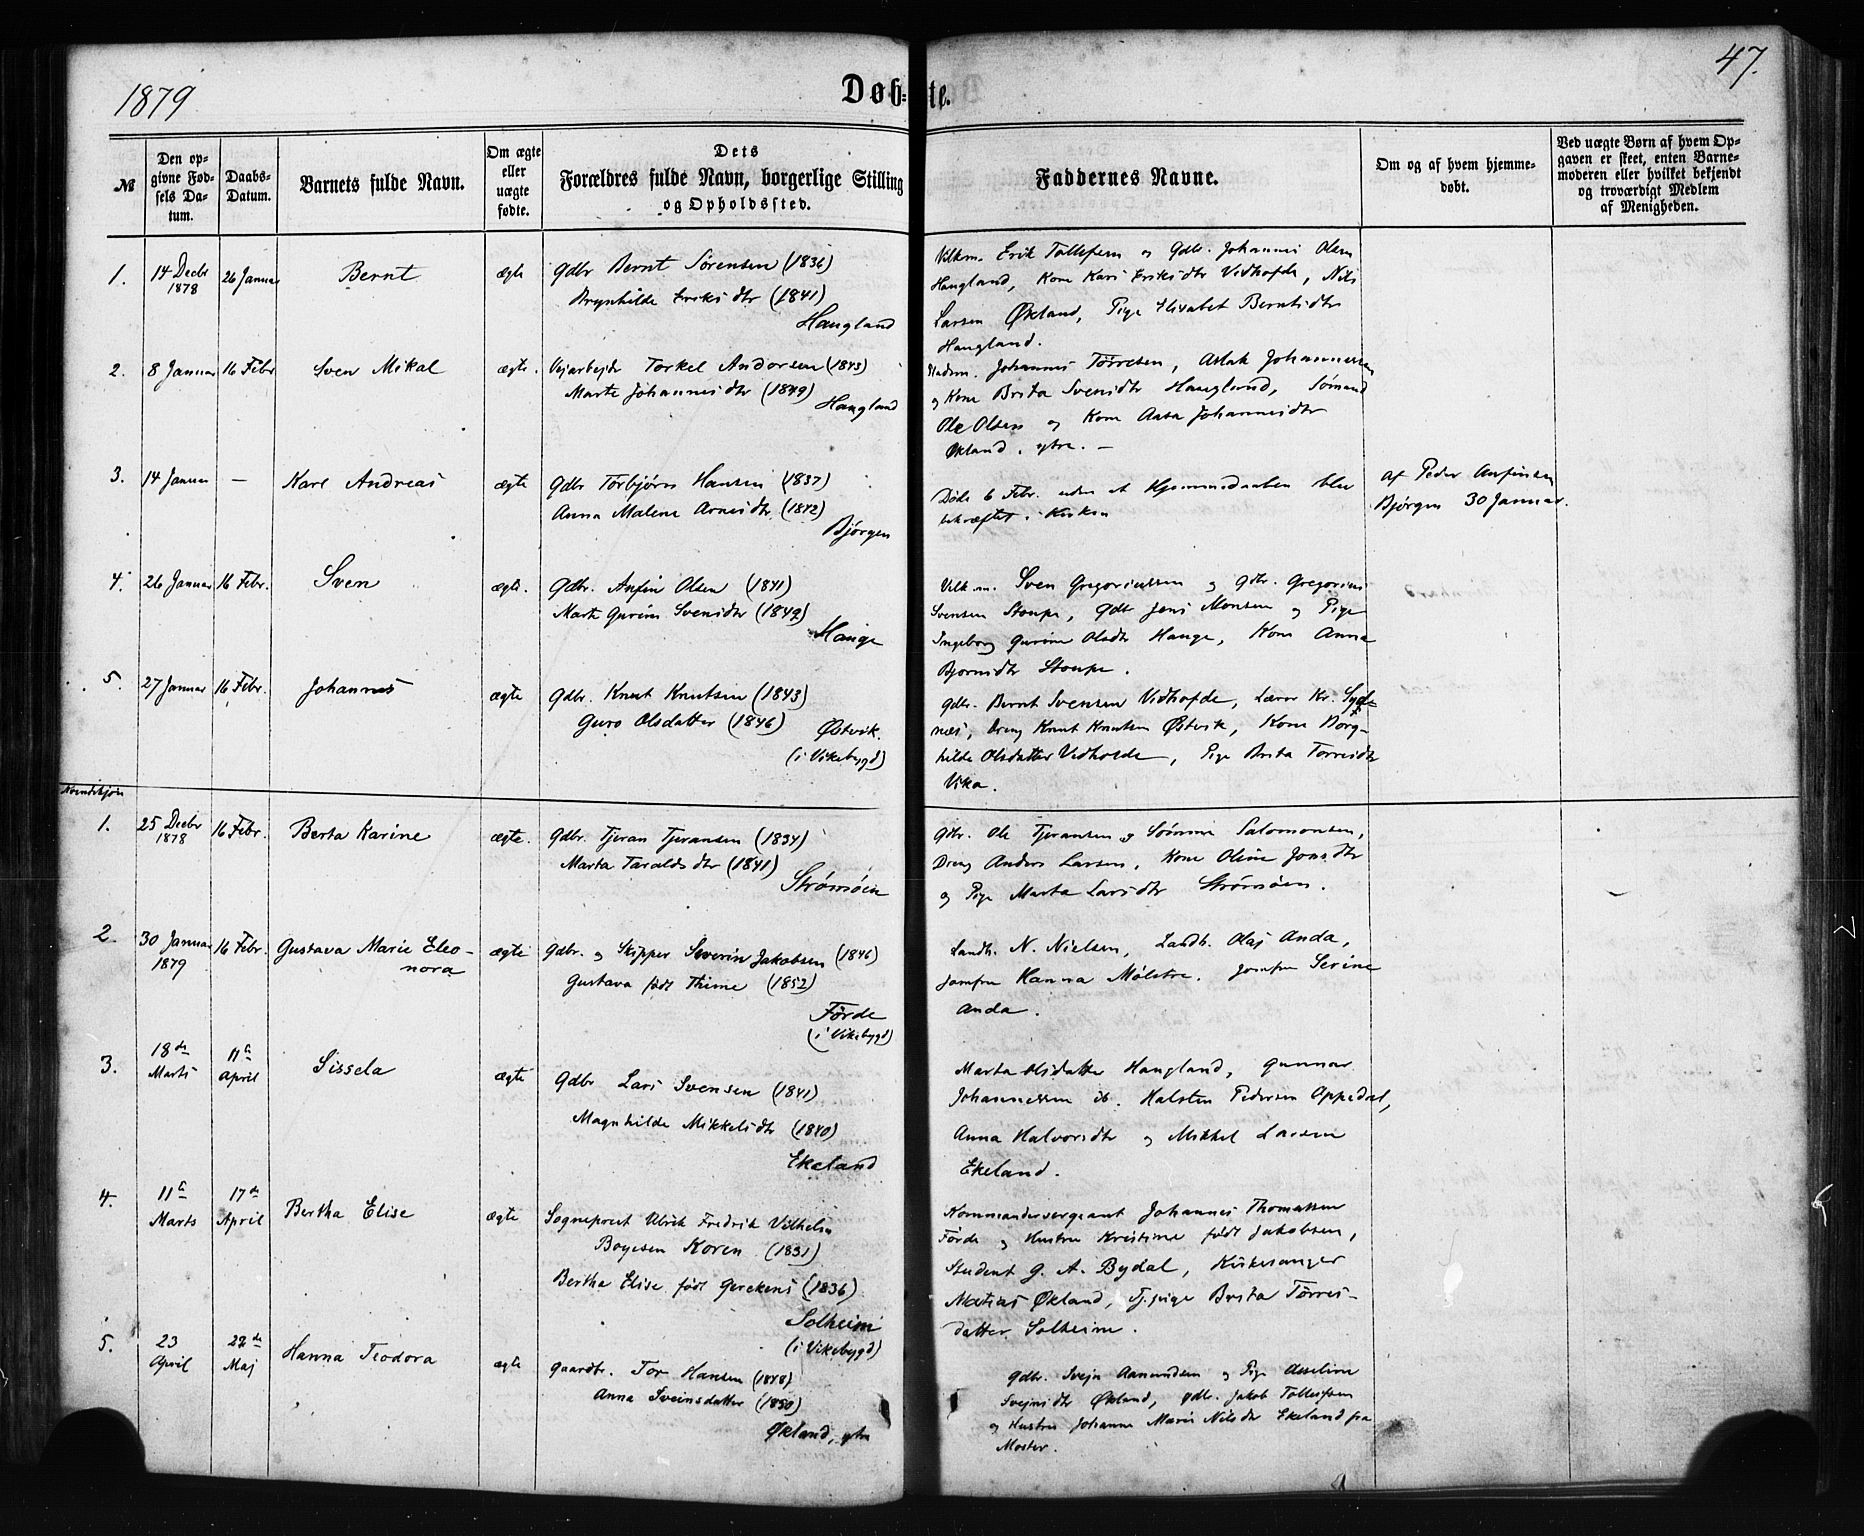 1879
Døb-te.
47.
№
Den opgivne Fødsels Datum.
Daabs-Datum.
Barnets fulde Navn.
Om ægte eller uægte fødte.
Dets Forældres fulde Navn, borgerlige Stilling og Opholdssted.
Faddernes Navne.
Om og af hvem hjemmedøbt.
Ved uægte Børn af hvem Opgaven er skeet, enten Barnemoderen eller hvilket bekjendt og troværdigt Medlem af Menigheden.
1. 14 Decbr 1878 26 Januar Bernt ægte
Gdbr Bernt Sørensen (1836)
Brynhilde Eriksdtr (1841)
Haugland
Erik Tollefsen og Gdbr. Johannes Olsen
Haugland, Kone Kari Eriksdtr Vidhofde, Nils
Larsen Økland, Pige Elisabet Berntsdtr
Haugland.
2. 8 Januar 16 Febr Sven Mikal ægte.
Vejarbejdr Torkel Andorsen (1843)
Marte Johannesdtr (1849)
Haugland
Johannes Törresen, Aslak Johannessen
og Kone Brita Svensdtr Haugland, Sömand
Ole Olsen og Kone Aasa Johannesdtr
Økland, ytre. –
3. 14 Januar – Karl Andreas ægte
Gdbr Torbjørn Hansen (1837)
Anna Malene Arnesdtr (1842)
Bjørgen
Døde 6 Febr. uden at Hjemmedaaben blev
bekræftet i Kirken
af Peder Anfinsen
Bjørgen 30 Januar.
4. 26 Januar 16 Febr. Sven ægte.
Gdbr. Anfin Olsen (1841)
Marte Gurine Svensdtr (1849)
Hauge
Sven Gregoriussen og Gdbr. Gregorius
Svensen Stoupe, Gdbr Jens Monsen og Pige
Ingeborg Gurine Olsdtr Hauge, Kone Anna
Bjørnsdtr Stoupe.
5. 27 Januar 16 Febr. Johannes ægte
Gdbr. Knut Knutsen (1843)
Guro Olsdatter (1846)
Østvik.
(i Vikebygd)
Gdbr. Bernt Svensen Vidhofde, Lærer Kr. Syd-
næs, Dreng Knut Knutsen Østvik, Kone Borg-
hilde Olsdatter Vidhofde, Pige Brita Törresdtr
Vika.
Kvindekjøn
1. 25 Decbr 1878 16 Febr. Berta Karine ægte.
Gdbr. Tjeran Tjeransen (1834)
Marta Taraldsdtr (1841)
Strömöen
Gdbr. Ole Tjeransen og Sömme Salomonsen,
Dreng Anders Larsen, Kone Oline Jonsdtr
og Pige Marta Larsdtr Strömöen.
2. 30 Januar 1879 16 Febr. Gustava Marie Eleo-
nora ægte
Gdbr. og Skipper Severin Jakobsen (1846)
Gustava født Thime (1852)
Förde
(i Vikebygd)
Landh. N. Nielsen, Landh. Olaj Anda,
Jomfru Hanna Mølstre. Jomfru Serine
Anda.
3. 18de Marts 11te April Sissela ægte
Gdbr Lars Svensen (1841)
Magnhilde Mikkelsdtr (1840)
Ekeland
Marta Olsdatter Haugland, Gunnar
Johannessen ib. Halsten Pedersen Oppedal,
Anna Halvorsdtr og Mikkel Larsen
Ekeland.
4. 11te Marts 17de April Bertha Elise ægte
Sogneprest Ulrik Fredrik Vilhelm
Boyesen Koren (1831)
Bertha Elise født Gerckens (1836)
Solheim
(i Vikebygd)
Kommandersergeant Johannes Thomassen
Förde og Hustru Kristine født Jakobsen,
Student G. A. Bydal, Kirkesanger
Matias Økland, Tj.pige Brita Törres-
datter Solheim.
5. 23 April 22de Maj Hanna Teodora ægte
Gaardbr. Tor Hansen (1848)
Anna Sveinsdatter (1850)
Økland, ytre
Gdbr. Svejn Aamundsen og Pige Asseline
Svejnsdtr Økland, gdbr. Jakob Tollefsen
og Hustru Johanne Marie Nilsdtr Ekeland fra
Moster.